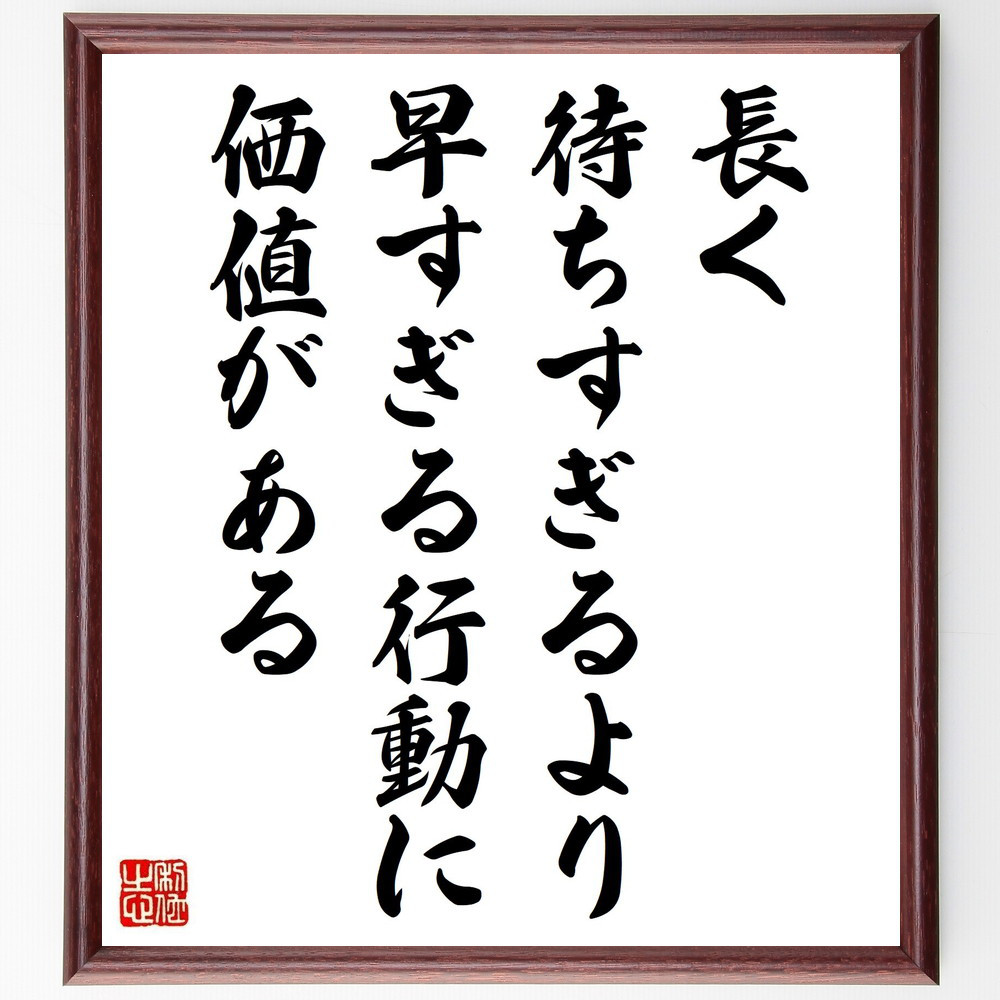 長く
待ちすぎるより
早すぎる行動に
価値がある